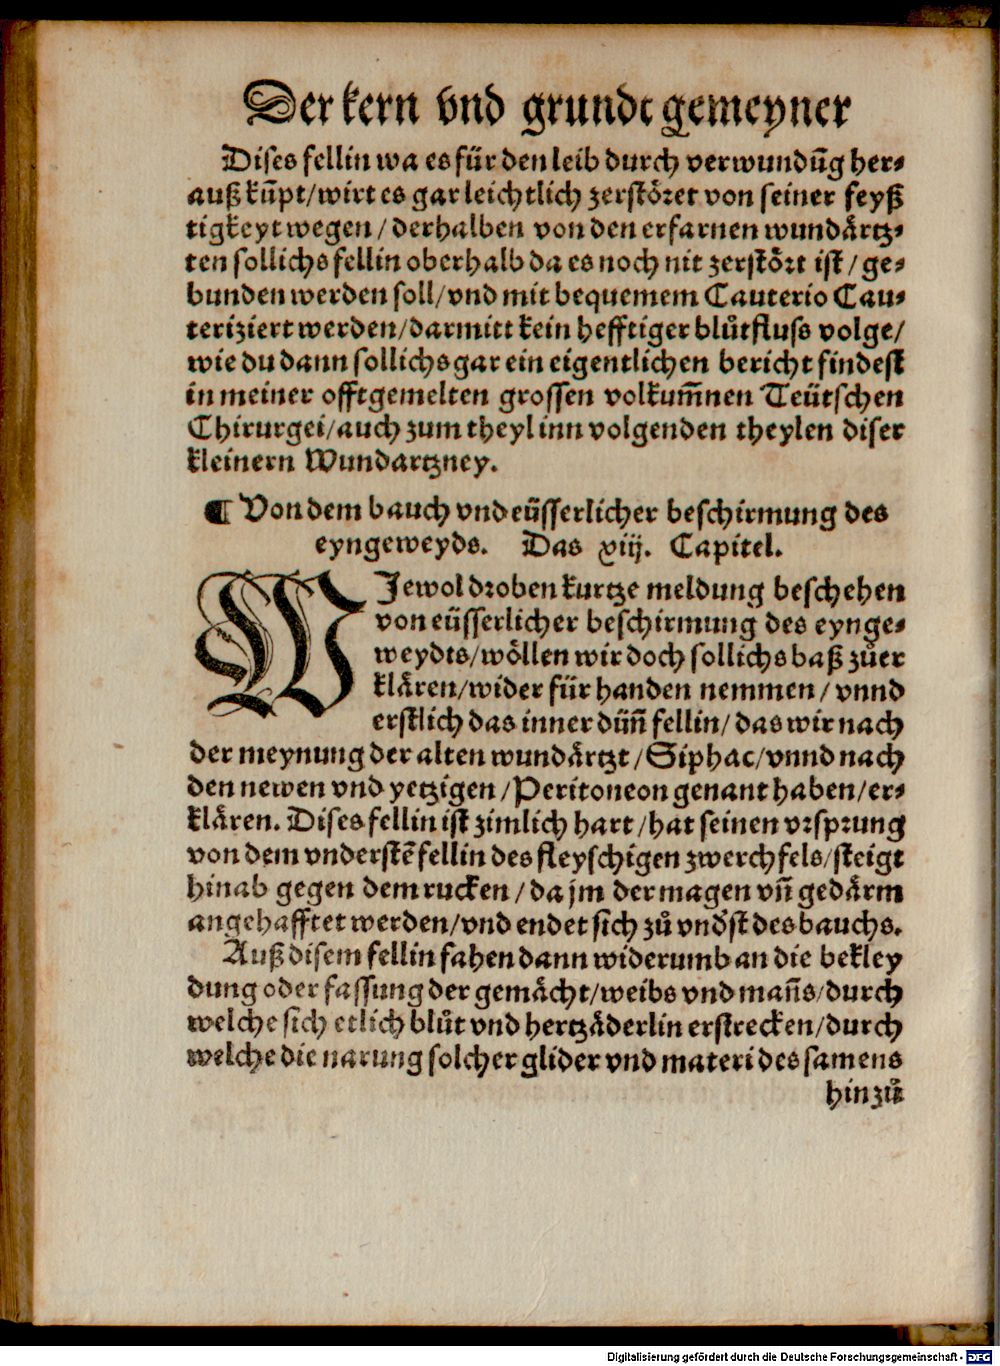 Der kern vnd grundt gemeyner
Dises fellin wa es für den leib durch verwundūg her⸗
auß kūpt/wirt es gar leichtlich zerstöret von seiner feyß
tigkeyt wegen/derhalben von den erfarnen wundärtz⸗
ten sollichs fellin oberhalb da es noch nit zerstört ist/ge⸗
bunden werden soll/vnd mit bequemem Cauterio Cau⸗
teriziert werden/darmitt kein hefftiger blůtfluss volge/
wie du dann sollichs gar ein eigentlichen bericht findest
in meiner offtgemelten grossen volkum̄nen Teütschen
Chirurgei/auch zum theyl inn volgenden theylen diser
kleinern Wundartzney.
¶ Von dem bauch vnd eüsserlicher beschirmung des
eyngeweyds. Das xiij. Capitel.
WJewol droben kurtze meldung beschehen
von eüsserlicher beschirmung des eynge⸗
weydts/wöllen wir doch sollichs baß zůer
klären/wider für handen nemmen/vnnd
erstlich das inner dün̄ fellin/das wir nach
der meynung der alten wundärtzt/Siphac/vnnd nach
den newen vnd yetzigen/Peritoneon genant haben/er⸗
klären. Dises fellin ist zimlich hart/hat seinen vrsprung
von dem vnderstē fellin des fleyschigen zwerchfels/steigt
hinab gegen dem rucken/da jm der magen vn̄ gedärm
angehafftet werden/vnd endet sich zů vndst des bauchs.
Auß disem fellin fahen dann widerumb an die bekley
dung oder fassung der gemächt/weibs vnd man̄s/durch
welche sich etlich blůt vnd hertzäderlin erstrecken/durch
welche die narung solcher glider vnd materi des samens
hinzů
Digitalisierung gefördert durch die Deutsche Forschungsgemeinschaft - DFG